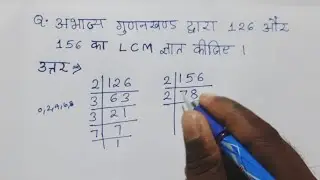 Q. अभाज्य गुणनखण्ड द्वारा 126 और
156 का LCM ज्ञात कीजिए ।
उत्तर →
2 126
3 63
3 21
7 7
1
2 156
2 78